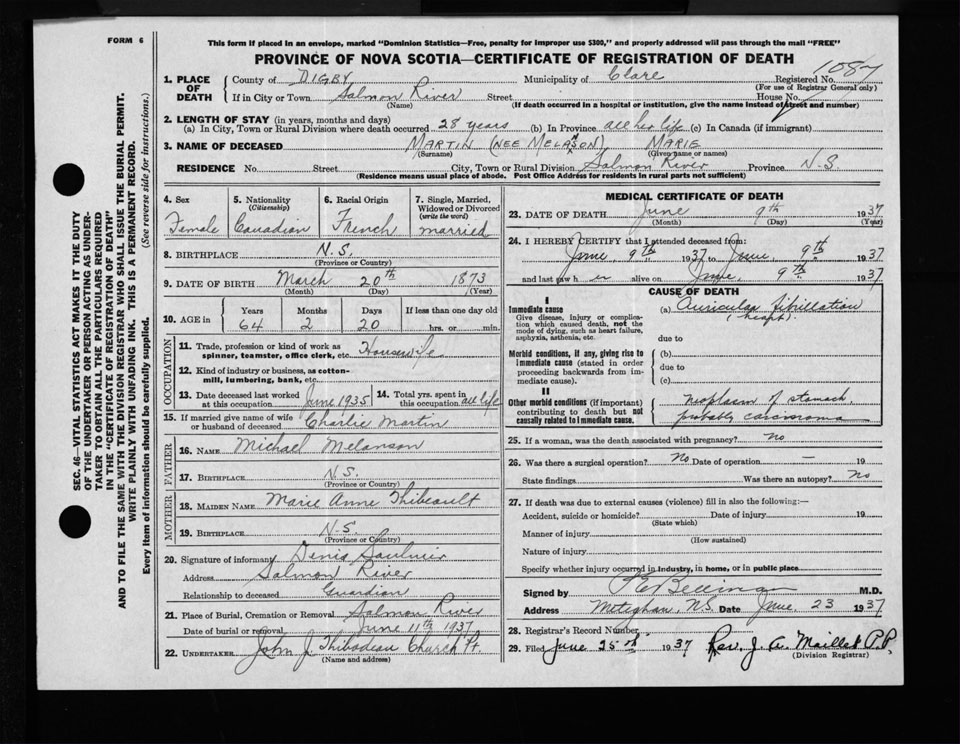 FORM 6
This form if placed in an envelope, marked "Dominion Statistics—Free, penalty for improper use $300," and properly addressed will pass through the mail "FREE"
PROVINCE OF NOVA SCOTIA—CERTIFICATE OF REGISTRATION OF DEATH
SEC. 46—VITAL STATISTICS ACT MAKES IT THE DUTY
OF THE UNDERTAKER OR PERSON ACTING AS UNDER-
TAKER TO OBTAIN ALL THE PARTICULARS REQUIRED
IN THE "CERTIFICATE OF REGISTRATION OF DEATH"
AND TO FILE THE SAME WITH THE DIVISION REGISTRAR WHO SHALL ISSUE THE BURIAL PERMIT.
WRITE PLAINLY WITH UNFADING INK. THIS IS A PERMANENT RECORD.
Every item of information should be carefully supplied. (See reverse side for instructions.)
1. PLACE OF DEATH County of DIGBY Municipality of Clare Registered No. 1087
(For use of Registrar General only)
If in City or Town Salmon River Street House No.
(Name) (If death occurred in a hospital or institution, give the name instead of street and number)
2. LENGTH OF STAY (in years, months and days)
(a) In City, Town or Rural Division where death occurred 28 years (b) In Province all her life (c) In Canada (if immigrant)
3. NAME OF DECEASED MARTIN (NEE MELANSON) MARIE
(Surname) (Given name or names)
RESIDENCE No. Street City, Town or Rural Division Salmon River Province N.S
(Residence means usual place of abode. Post Office Address for residents in rural parts not sufficient)
4. Sex 5. Nationality (Citizenship) 6. Racial Origin 7. Single, Married, Widowed or Divorced (write the word)
Female Canadian French married
8. BIRTHPLACE N.S.
(Province or Country)
9. DATE OF BIRTH March 20th 1873
(Month) (Day) (Year)
10. AGE in Years Months Days If less than one day old
64 2 20 hrs. or min.
OCCUPATION
11. Trade, profession or kind of work as spinner, teamster, office clerk, etc. Housewife
12. Kind of industry or business, as cotton-mill, lumbering, bank, etc.
13. Date deceased last worked at this occupation June 1935 14. Total yrs. spent in this occupation all life
15. If married give name of wife or husband of deceased Charlie Martin
FATHER
16. NAME Michael Melanson
17. BIRTHPLACE N.S.
(Province or Country)
MOTHER
18. MAIDEN NAME Marie Anne Thibeault
19. BIRTHPLACE N.S.
(Province or Country)
20. Signature of informant Denis Saulnier
Address Salmon River
Relationship to deceased Guardian
21. Place of Burial, Cremation or Removal Salmon River
Date of burial or removal June 11th 1937
22. UNDERTAKER John J. Thibodeau Church Pt.
(Name and address)
MEDICAL CERTIFICATE OF DEATH
23. DATE OF DEATH June 9th 1937
(Month) (Day) (Year)
24. I HEREBY CERTIFY that I attended deceased from:
June 9th 1937 to June 9th 1937
and last saw h er alive on June 9th 1937
CAUSE OF DEATH
I
Immediate cause (a) Auricular fibrillation
Give disease, injury or complication which caused death, not the mode of dying, such as heart failure, asphyxia, asthenia, etc. (heart).
due to
Morbid conditions, if any, giving rise to immediate cause (stated in order proceeding backwards from immediate cause). (b)
due to
(c)
II
Other morbid conditions (if important) contributing to death but not causally related to immediate cause. neoplasm of stomach
probably carcinoma
25. If a woman, was the death associated with pregnancy? no
26. Was there a surgical operation? No Date of operation — 19
State findings Was there an autopsy? No
27. If death was due to external causes (violence) fill in also the following:—
Accident, suicide or homicide? Date of injury 19
(State which)
Manner of injury
(How sustained)
Nature of injury
Specify whether injury occurred in industry, in home, or in public place
Signed by Belling M.D.
Address Meteghan, N.S. Date June 23 1937
28. Registrar's Record Number
29. Filed June 25th 1937 Rev. J. A. Maillet P.P.
(Division Registrar)